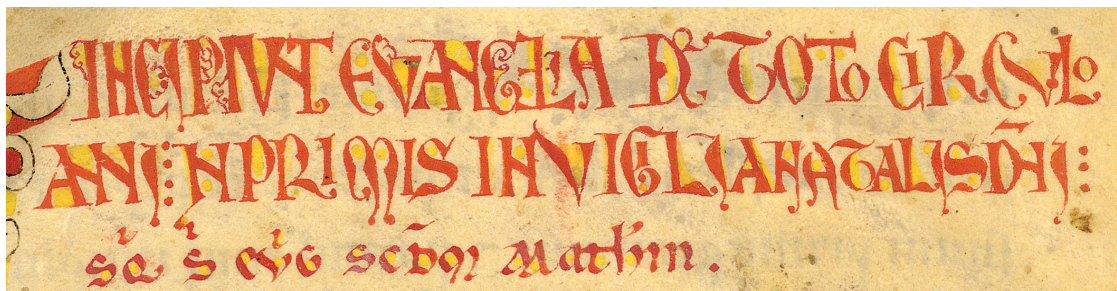 INCIPIVNT EVANGELIA DE TOTO CIRCVLO
ANNI : IN PRIMIS IN VIGILIA NATALIS DN̄I :
Sq̃ s̃ ev̄g scd̄m Mathm̄.